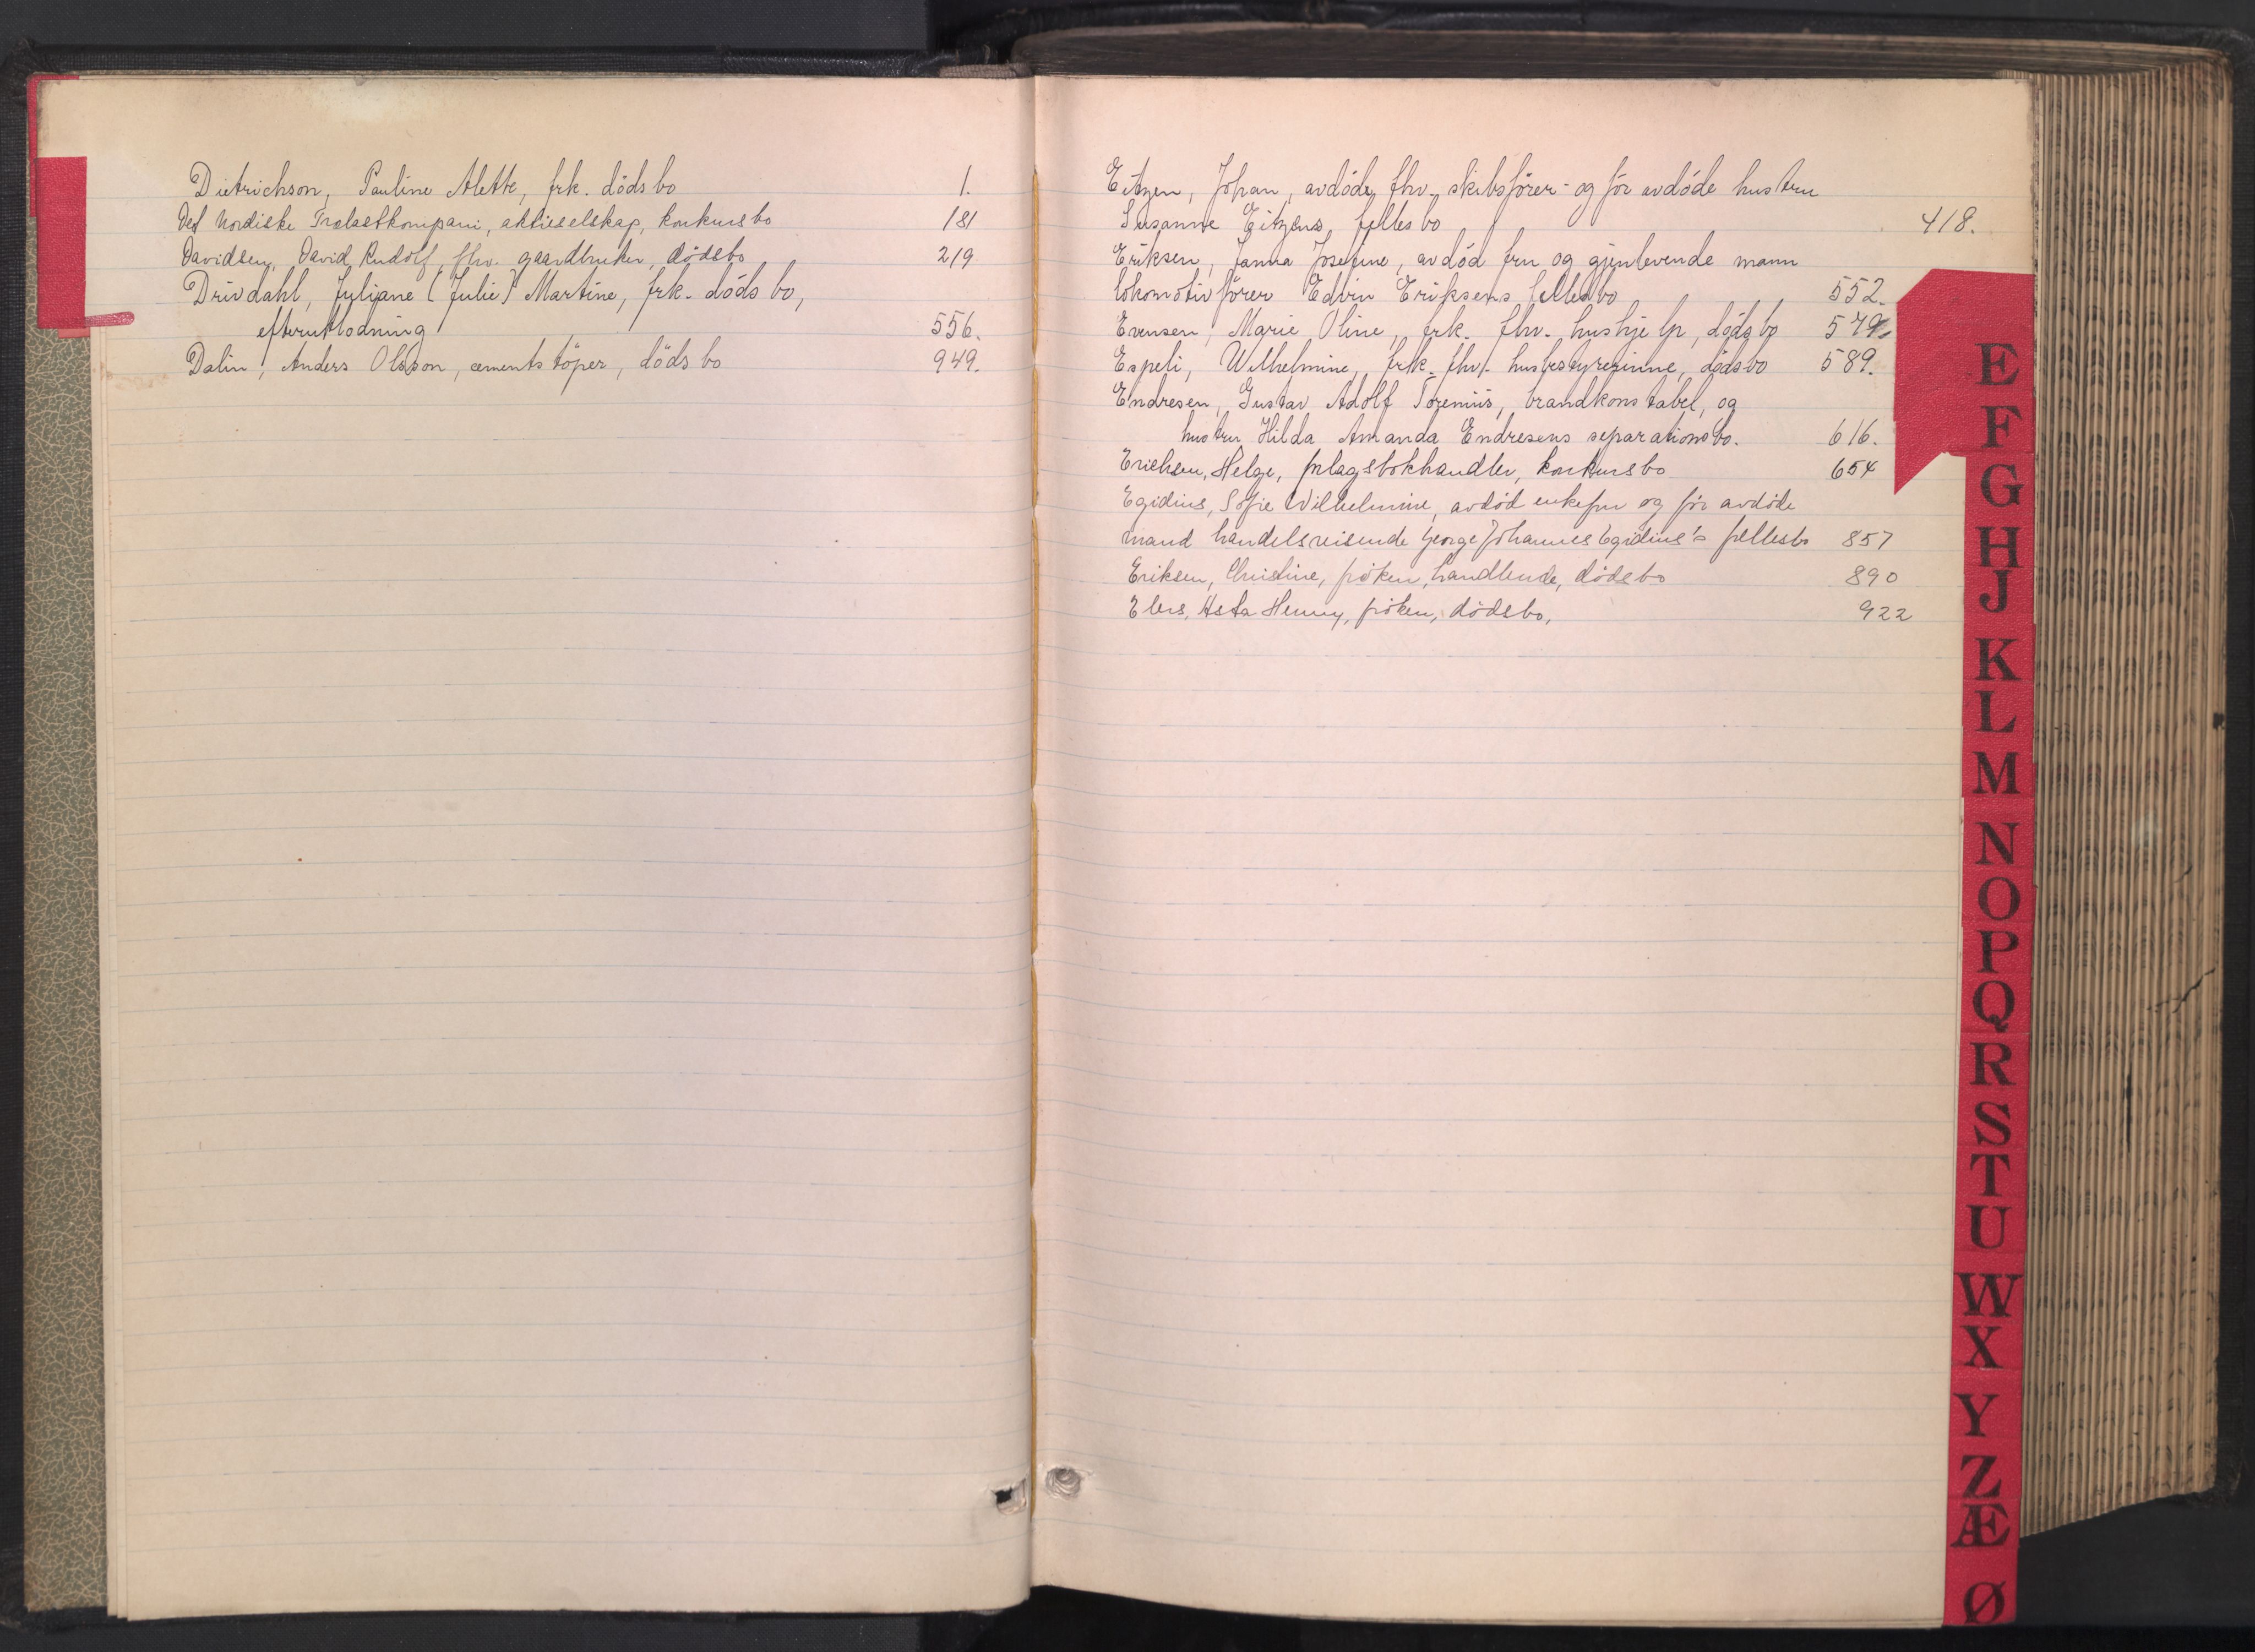 Dietrichson, Pauline Alette, frk. dödsbo 1.
Det Nordiske Trælastkompani, aktieselskap, konkursbo 181
Davidsen, David Rudolf, fhv. gaardbruker, dödsbo 219
Drivdahl, Julijane (Julie) Martine, frk. dödsbo,
efterutlodning 556.
Dalin, Anders Olsson, cementstöper, dödsbo 949.
Eitzen, Johan, avdöde, fhv. skibsförer- og för avdöde hustru
Susanne Eitzens fellesbo 418.
Eriksen, Janna Josefine, avdöd fru og gjenlevende mann
lokomotivförer Edvin Eriksens fellesbo 552.
Evensen, Marie Oline, frk. fhv. hushjelp, dödsbo 579.
Espeli, Wilhelmine, frk. fhv. husbestyrerinne, dödsbo 589.
Endresen, Gustav Adolf, brandkonstabel, og
hustru Hilda Amanda Endresens separationsbo. 616.
Erichsen, Helge, forlagsbokhandler, konkursbo 654
Egidius, Sofie Wilhelmine, avdöd enkefru og för avdöde
mand handelsreisende George Johannes Egidius's fellesbo 857
Eriksen, Christine, fröken, handlende, dödsbo 890
Elers, Asta Henny, fröken, dödsbo, 922
E
F
G
H
J
K
L
M
N
O
P
Q
R
S
T
U
W
X
Y
Z
Æ
Ø